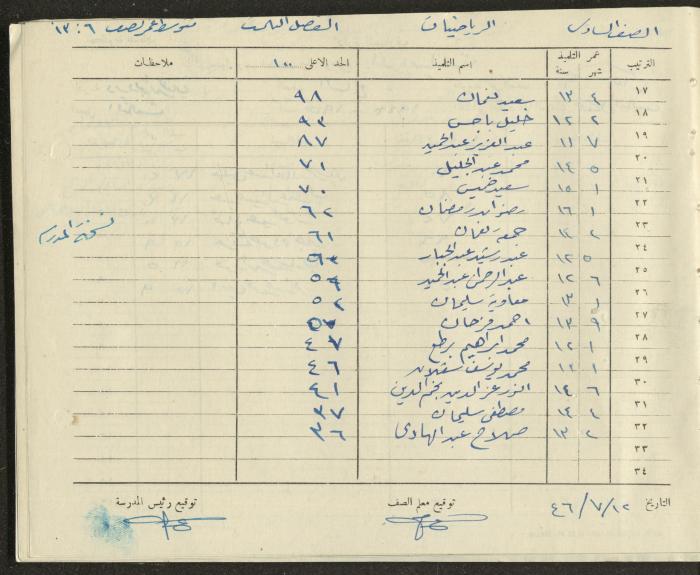 الصف السادس الرياضيات الفصل الثالث متوسط عمر الصف ١٣:٦
الترتيب عمر التلميذ شهر سنة اسم التلميذ الحد الاعلى ١٠٠ ملاحظات
١٧ ٤ ١٣ سعيد نعمان ٩٨
١٨ ٢ ١٢ خليل ٩٣
١٩ ٧ ١١ عبد العزيز عبد الحميد ٨٧
٢٠ ٥ ١٤ محمد عبد الجليل ٧١
٢١ ١ ١٥ سعيد خميس ٧٠
٢٢ ١ ١٦ رمضان ٦٢
٢٣ ٢ ١٤ جمعه رمضان ٦١
٢٤ ٥ ١٢ عبد رشيد عبد الجبار
٢٥ ٦ ١٢ عبد الرحمن عبد المجيد
٢٦ ١٣ معاوية سليمان ٥٢
٢٧ ٩ ١٣ احمد فرحان
٢٨ ١ ١٢ محمد ابراهيم ٤٧
٢٩ ١ ١٢ محمد يوسف ٤٦
٣٠ ٦ ١٤ عز الدين نجم الدين ٤١
٣١ ١٤ مصطفى سليمان ٣٧
٣٢ ٢ ١٣ صلاح عبد الهادى ٣٦
٣٣
٣٤
نسخة المدرسة
التاريخ ٤٦/٧/١٢ توقيع معلم الصف توقيع رئيس المدرسة